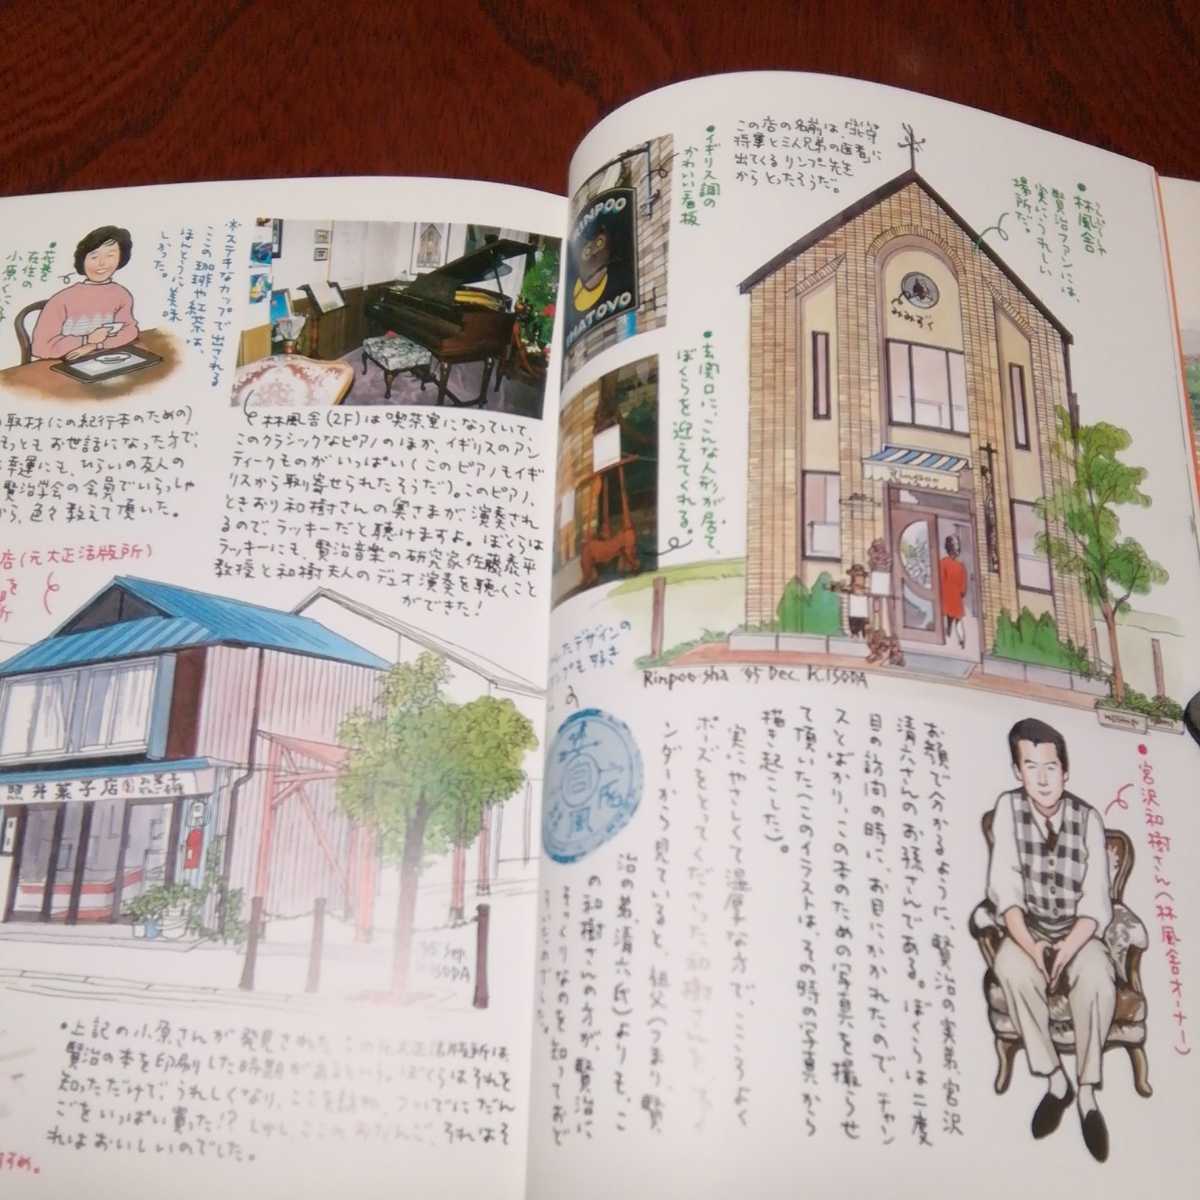 ●花巻
在住の
小原
*ステキなカップで出される
ここの珈琲や紅茶は、
ほんとうに美味
しかった。
取材(この紀行本のための)
もっともお世話になった方で、
幸運にも、ひらいの友人の
賢治学会の会員でいらっしゃ
から、色々教えて頂いた。
林風舎(2F)は喫茶室になっていて、
このクラシックなピアノのほか、イギリスのアン
ティークものがいっぱい(このピアノもイギ
リスから取り寄せられたそうだ)。このピアノ、
ときおり和樹さんの奥さまが演奏され
るので、ラッキーだと聴けますよ。ぼくらは
ラッキーにも、賢治音楽の研究家佐藤泰平
教授と和樹夫人のデュオ演奏を聴くこと
ができた!
店(元大正活版所)
照井菓子店
お菓子
'95 Sep.
K.ISODA
●上記の小原さんが発見された、この元大正活版所は、
賢治の本を印刷した時期があるという。ぼくらはそれを
知っただけで、うれしくなり、ここを訪ね、ついでにだん
ごをいっぱい買った!? しかし、ここのおだんご、それはそ
れはおいしいのでした。
すすめ。
●イギリス調の
かわいい看板
この店の名前は、「北守
将軍と三人兄弟の医者」に
出てくるリンプー先生
からとったそうだ。
●林風舎
りんぷうしゃ
賢治ファンには、
実にうれしい
場所だ。
RINPOO
IHATOVO
みみずく
●玄関口に、こんな人形が居て、
ぼくらを迎えてくれる。
したデザインの
ンプも好き
Rinpoo-sha '95 Dec. K.ISODA
●宮沢和樹さん(林風舎オーナー)
お顔で分かるように、賢治の実弟、宮沢
清六さんのお孫さんである。ぼくらは二度
目の訪問の時に、お目にかかれたので、チャン
スとばかり、この本のための写真を撮らせ
て頂いた(このイラストは、その時の写真から
描き起こした)。
実にやさしくて温厚な方で、こころよく
ポーズをとってくださった和樹さん。ファイ
ンダーから見ていると、祖父(つまり、賢
治の弟、清六氏)よりも、こ
の和樹さんの方が、賢治に
そっくりなのを知っておど